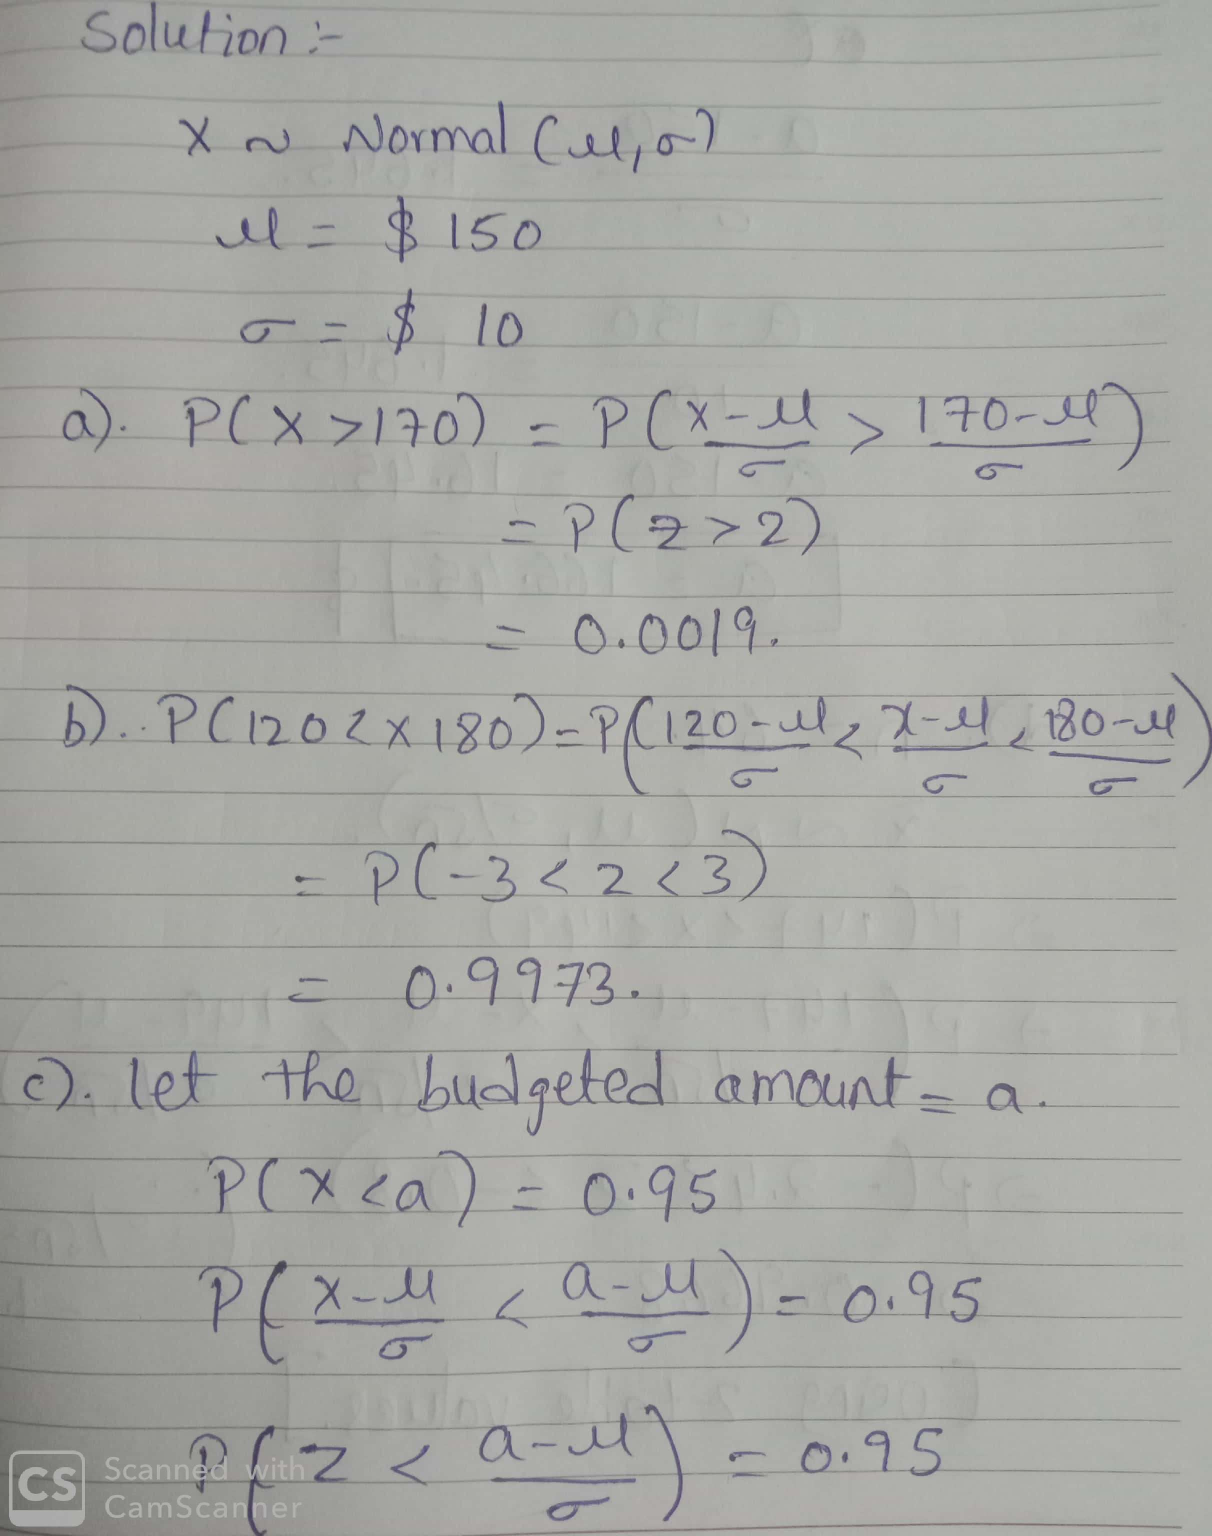 Solution :-
X ~ Normal (μ, σ)
μ = $ 150
σ = $ 10
a). P(X > 170) = P(X-μ/σ > 170-μ/σ)
= P(Z > 2)
= 0.0019.
b).. P(120 < X 180) = P(120-μ/σ < X-μ/σ < 180-μ/σ)
= P(-3 < Z < 3)
= 0.9973.
c). let the budgeted amount = a.
P(X < a) = 0.95
P(X-μ/σ < a-μ/σ) = 0.95
P(Z < a-μ/σ) = 0.95
CS Scanned with
CamScanner